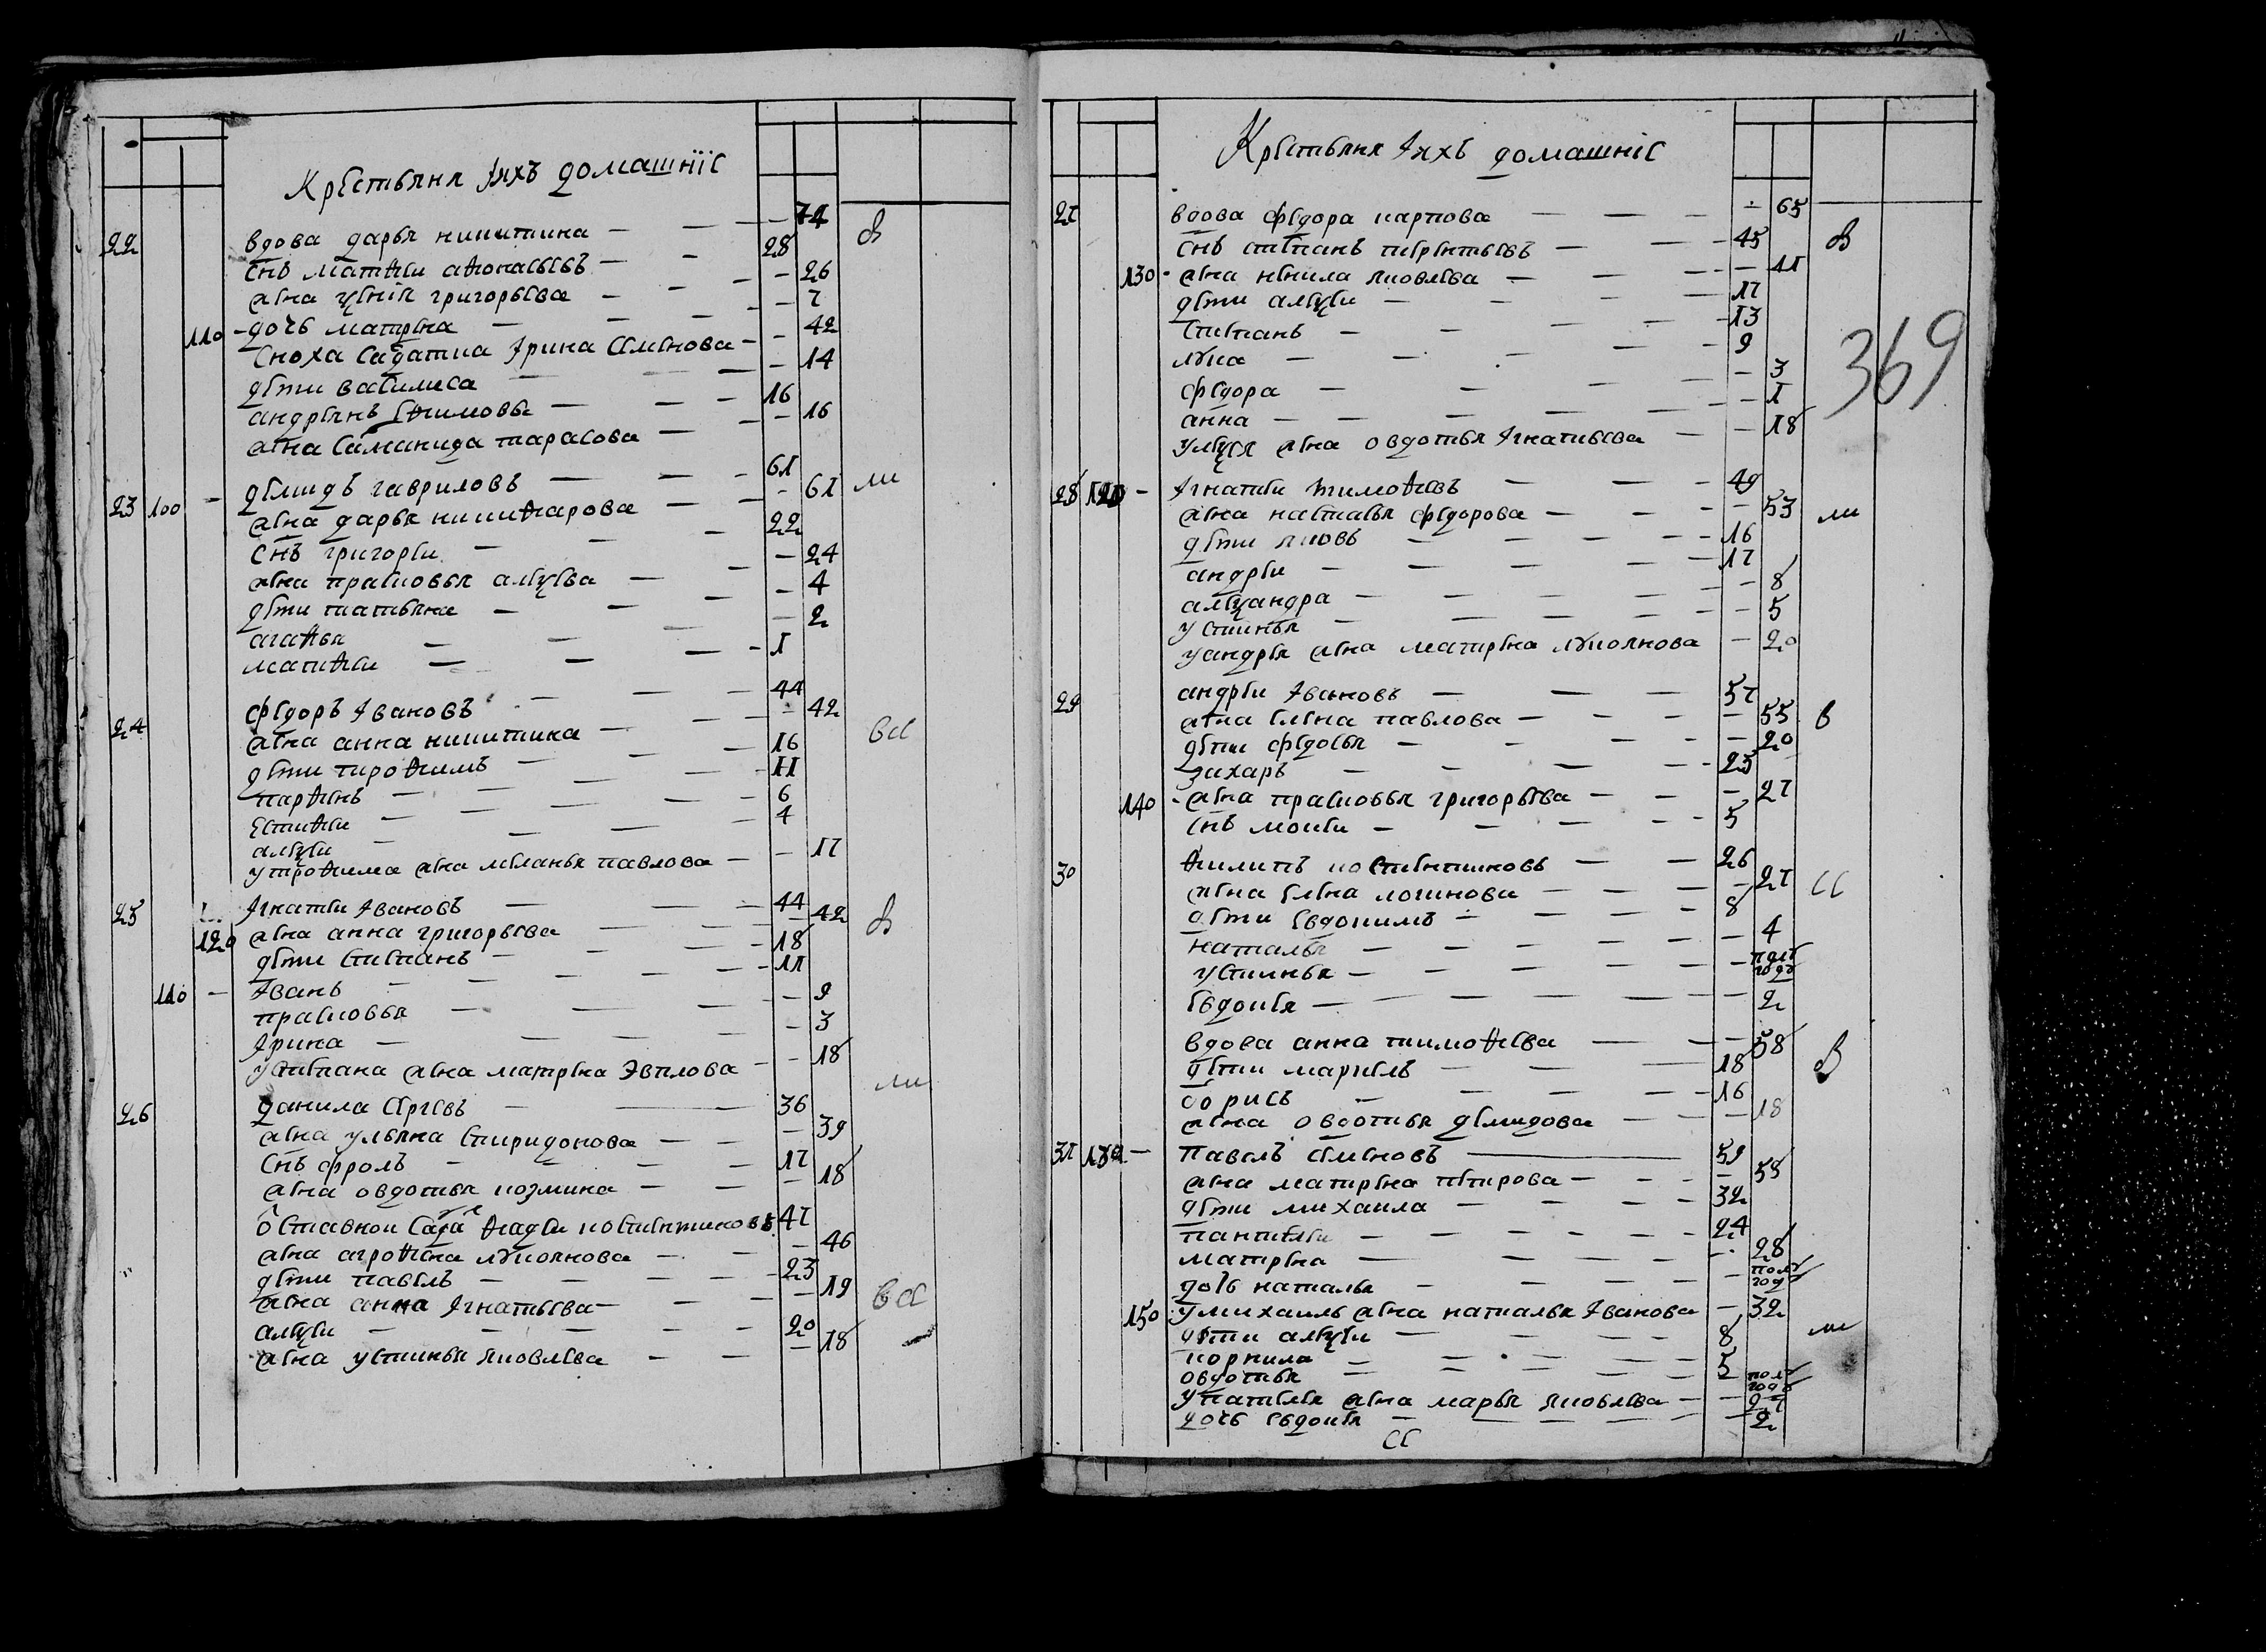 Крестьяня Iихъ домашнiiе
22 вдова дарья никитина — — 74 в
снъ матѳеи аѳонасьевъ — 28
жена ѯениiя григорьева — 26
дочь матрена — 7
110 сноха салдатка Iрина семенова — 42
дети василиса — 14
андреянъ еѳимовъ — 16
жена саманида тарасова — 16
23 100 — демидъ гавриловъ — 61 ли
жена дарья никиѳарова — 61
снъ григореи — 22
жена прасковья алеѯева — 24
дети татьяна — 4
агаѳья — 2
матѳеи — 1
24 ѳедоръ Iвановъ — 44
жена анна никитина — 42 всс
дети троѳимъ — 16
парѳенъ — 11
естиѳеи — 6
алеѯеи — 4
утроѳима жена меланья павлова — 17
25 Iгнатеи Iвановъ — 44 в
120 жена анна григорьева — 42
дети степанъ — 18
110 — Iванъ — 11
прасковья — 9
Iрина — 3
устепана жена матрена Эвилова — 18
26 данила сергеевъ — 36 ли
жена ульяна спиридонова — 39
снъ фролъ — 17
жена овдотья козмина — 18
оставнои садатъ ѳадеи костентиновъ 47
жена агроѳена лукоянова — 46
дети павелъ — 23
жена анна Iгнатьева — 19 всс
алеѯеи — 20
жена устинья яковлева — 18
Крестьяня Iихъ домашнiе
369
27 вдова ѳедора карпова — 65
снъ степанъ терентьевъ — 45 в
130 - жена ненила яковлева — 41
дети алеѯеи — 17
степанъ — 13
лука — 9
ѳедора — 3
анна — 1
уалеѯея жена овдотья Iгнатьева — 18
28 120 — Iгнатеи тимоѳеевъ — 49
жена настасья ѳедорова — 53 ли
дети яковъ — 16
андреи — 17
алеѯандра — 8
устинья — 5
уандрея жена матрена лукоянова — 20
29 андреи Iвановъ — 57
жена елена павлова — 55 в
дети ѳедосья — 20
захаръ — 23
140 - жена прасковья григорьева — 27
снъ мокеи — 5
30 ѳилипъ костентиновъ — 26
жена елена логинова — 27 сс
дети евдокимъ — 8
наталья — 4
устинья — полъ годъ
евдокея — 2
вдова анна тимоѳеева — 58
дети маркелъ — 18 в
борисъ — 16
жена овдотья демидова — 18
31 130 — Павелъ семеновъ — 59
жена матрена петрова — 58
дети михаила — 32
пантелеи — 24
матрена — 28
дочь наталья — полъ годъ
150 умихаилы жена наталья Iванова — 32
дети алеѯеи — 8 ли
корнила — 5
овдотья — полъ годъ
упателея жена марья яковлева — 27
дочь евдокея — 2
сс